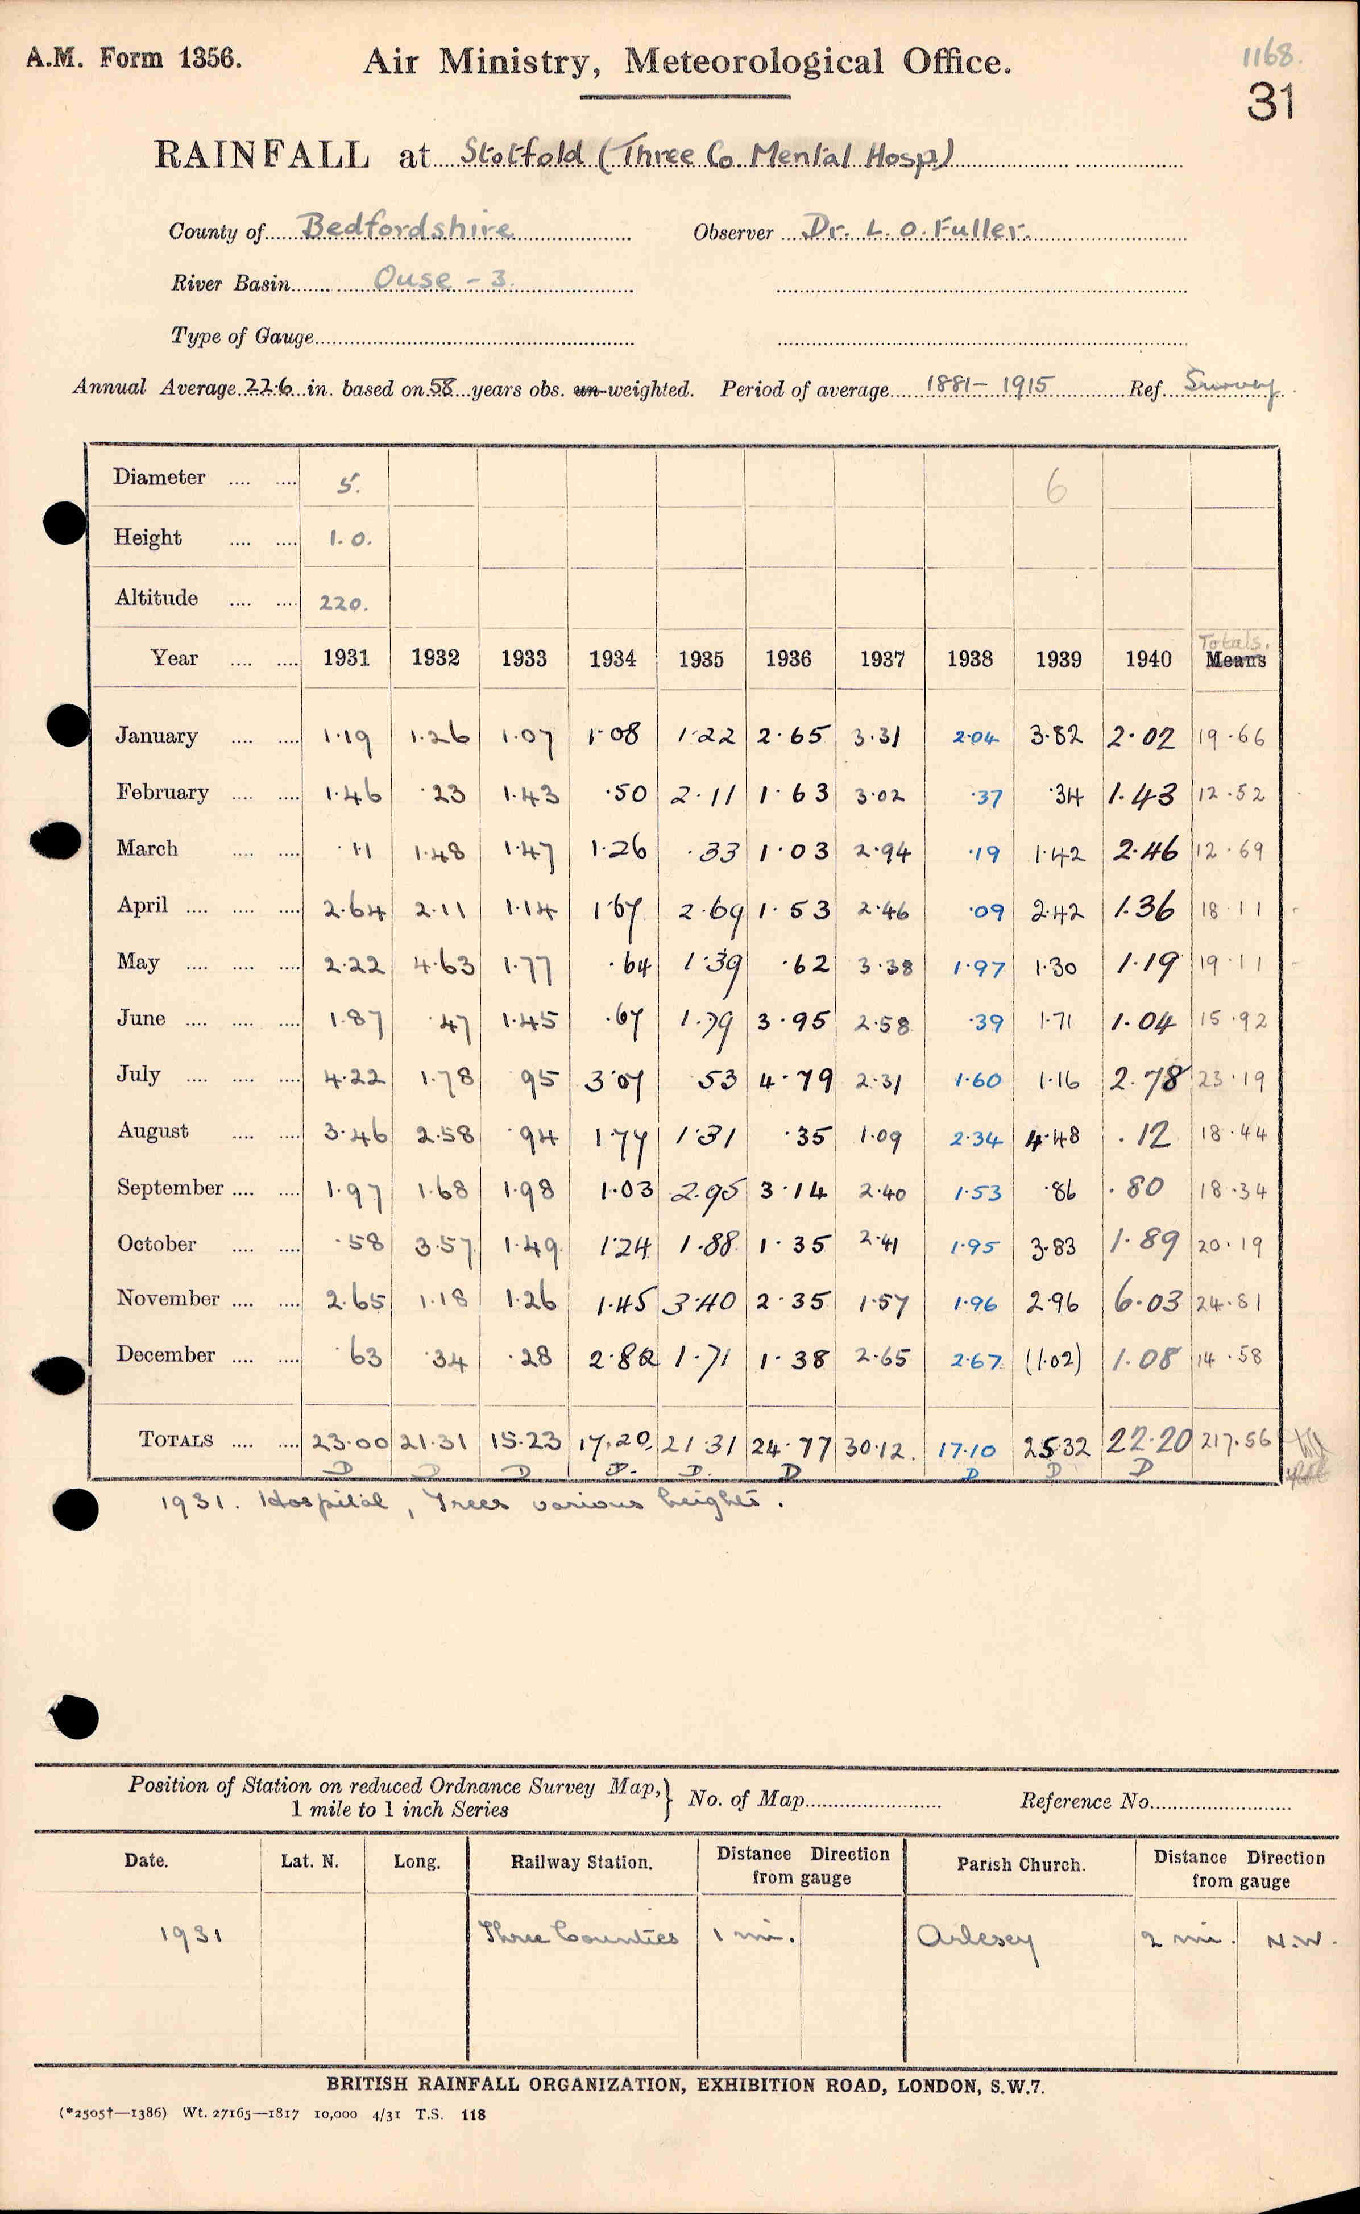 A.M. Form 1356. Air Ministry, Meteorological Office. 1168.
31
RAINFALL at Stotfold (Three Co. Mental Hosp.)
County of Bedfordshire Observer Dr. L. O. Fuller.
River Basin Ouse - 3.
Type of Gauge
Annual Average 22.6 in. based on 58 years obs. un-weighted. Period of average 1881-1915 Ref. Survey
Diameter .... .... 5. 6
Height .... .... 1.0.
Altitude .... .... 220.
Totals.
Year .... .... 1931 1932 1933 1934 1935 1936 1937 1938 1939 1940 Means
January .... .... 1.19 1.26 1.07 1.08 1.22 2.65 3.31 2.04 3.82 2.02 19.66
February .... .... 1.46 .23 1.43 .50 2.11 1.63 3.02 .37 .34 1.43 12.52
March .... .... .11 1.48 1.47 1.26 .33 1.03 2.94 .19 1.42 2.46 12.69
April .... .... .... 2.64 2.11 1.14 1.67 2.69 1.53 2.46 .09 2.42 1.36 18.11
May .... .... .... 2.22 4.63 1.77 .64 1.39 .62 3.38 1.97 1.30 1.19 19.11
June .... .... .... 1.87 .47 1.45 .67 1.79 3.95 2.58 .39 1.71 1.04 15.92
July .... .... .... 4.22 1.78 .95 3.07 .53 4.79 2.31 1.60 1.16 2.78 23.19
August .... .... 3.46 2.58 .94 1.77 1.31 .35 1.09 2.34 4.48 .12 18.44
September .... .... 1.97 1.68 1.98 1.03 2.95 3.14 2.40 1.53 .86 .80 18.34
October .... .... .58 3.57 1.49 1.24 1.88 1.35 2.41 1.95 3.83 1.89 20.19
November .... .... 2.65 1.18 1.26 1.45 3.40 2.35 1.57 1.96 2.96 6.03 24.81
December .... .... .63 .34 .28 2.82 1.71 1.38 2.65 2.67 (1.02) 1.08 14.58
TOTALS .... .... 23.00 21.31 15.23 17.20 21.31 24.77 30.12 17.10 25.32 22.20 217.56
D D D D. D. D D D D
1931. Hospital, Trees various heights.
Position of Station on reduced Ordnance Survey Map,} No. of Map Reference No.
1 mile to 1 inch Series
Date. Lat. N. Long. Railway Station. Distance Direction from gauge Parish Church. Distance Direction from gauge
1931 Three Counties 1 mi. Arlesey 2 mi. N.W.
BRITISH RAINFALL ORGANIZATION, EXHIBITION ROAD, LONDON, S.W.7.
(*2505†—1386) Wt. 27165—1817 10,000 4/31 T.S. 118